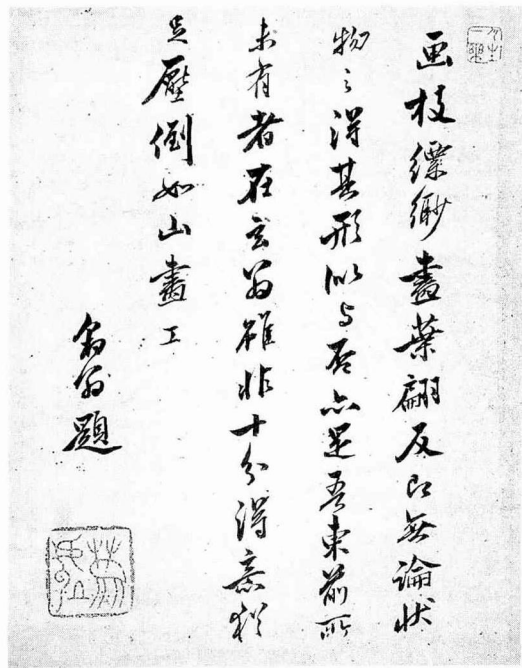 画枝縹緲畫葉翩反即無論状
物之得其形似与否亦是吾東前所
未有者在玄翁雖非十分得意猶
足壓倒如山畫工
翁題